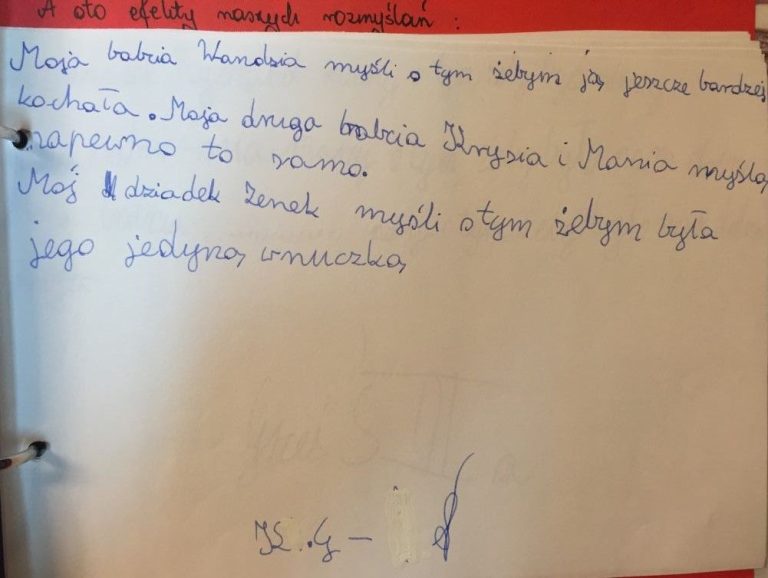 A oto efekty naszych rozmyślań :
Moja babcia Wandzia myśli o tym żebym ją jeszcze bardziej
kochała. Moja druga babcia Krysia i Mania myślą
napewno to samo.
Mój dziadek Zenek myśli o tym żebym była
jego jedyną wnuczką
K.G –